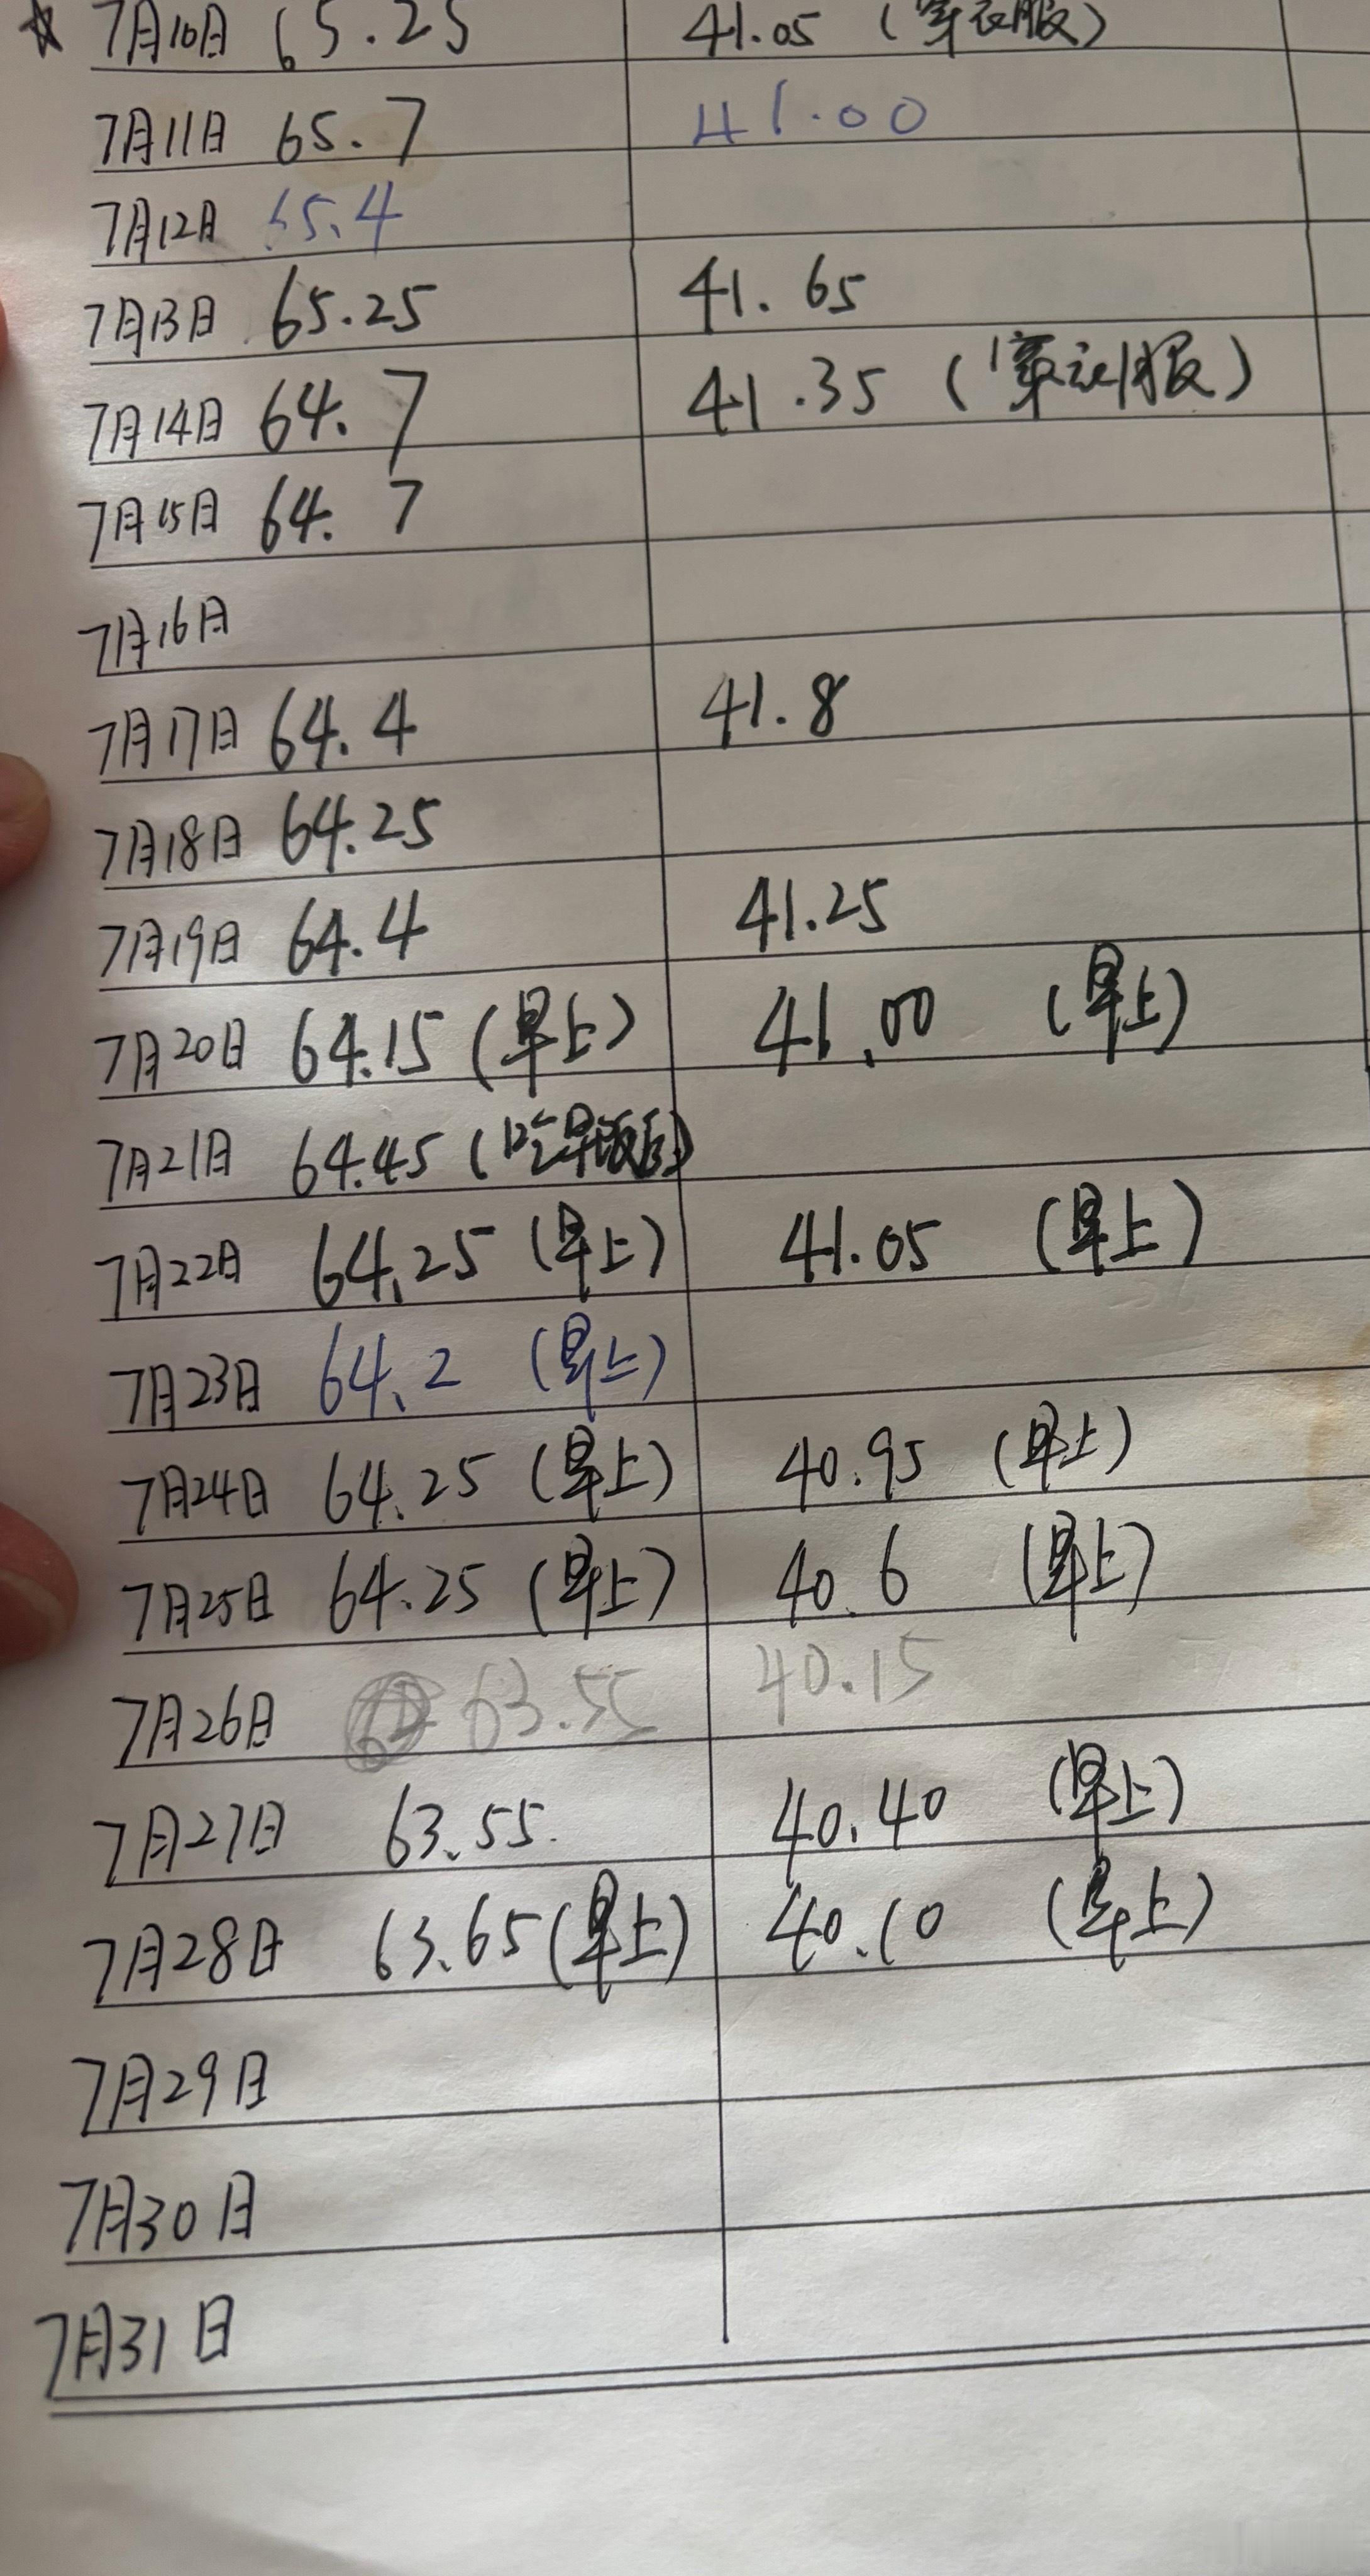 ☆ 7月10日 65.25 41.05 (穿衣服)
7月11日 65.7 41.00
7月12日 65.4
7月13日 65.25 41.65
7月14日 64.7 41.35 (穿衣服)
7月15日 64.7
7月16日
7月17日 64.4 41.8
7月18日 64.25
7月19日 64.4 41.25
7月20日 64.15 (早上) 41.00 (早上)
7月21日 64.45 (吃早饭后)
7月22日 64.25 (早上) 41.05 (早上)
7月23日 64.2 (早上)
7月24日 64.25 (早上) 40.95 (早上)
7月25日 64.25 (早上) 40.6 (早上)
7月26日 63.55 40.15
7月27日 63.55. 40.40 (早上)
7月28日 63.65 (早上) 40.10 (早上)
7月29日
7月30日
7月31日